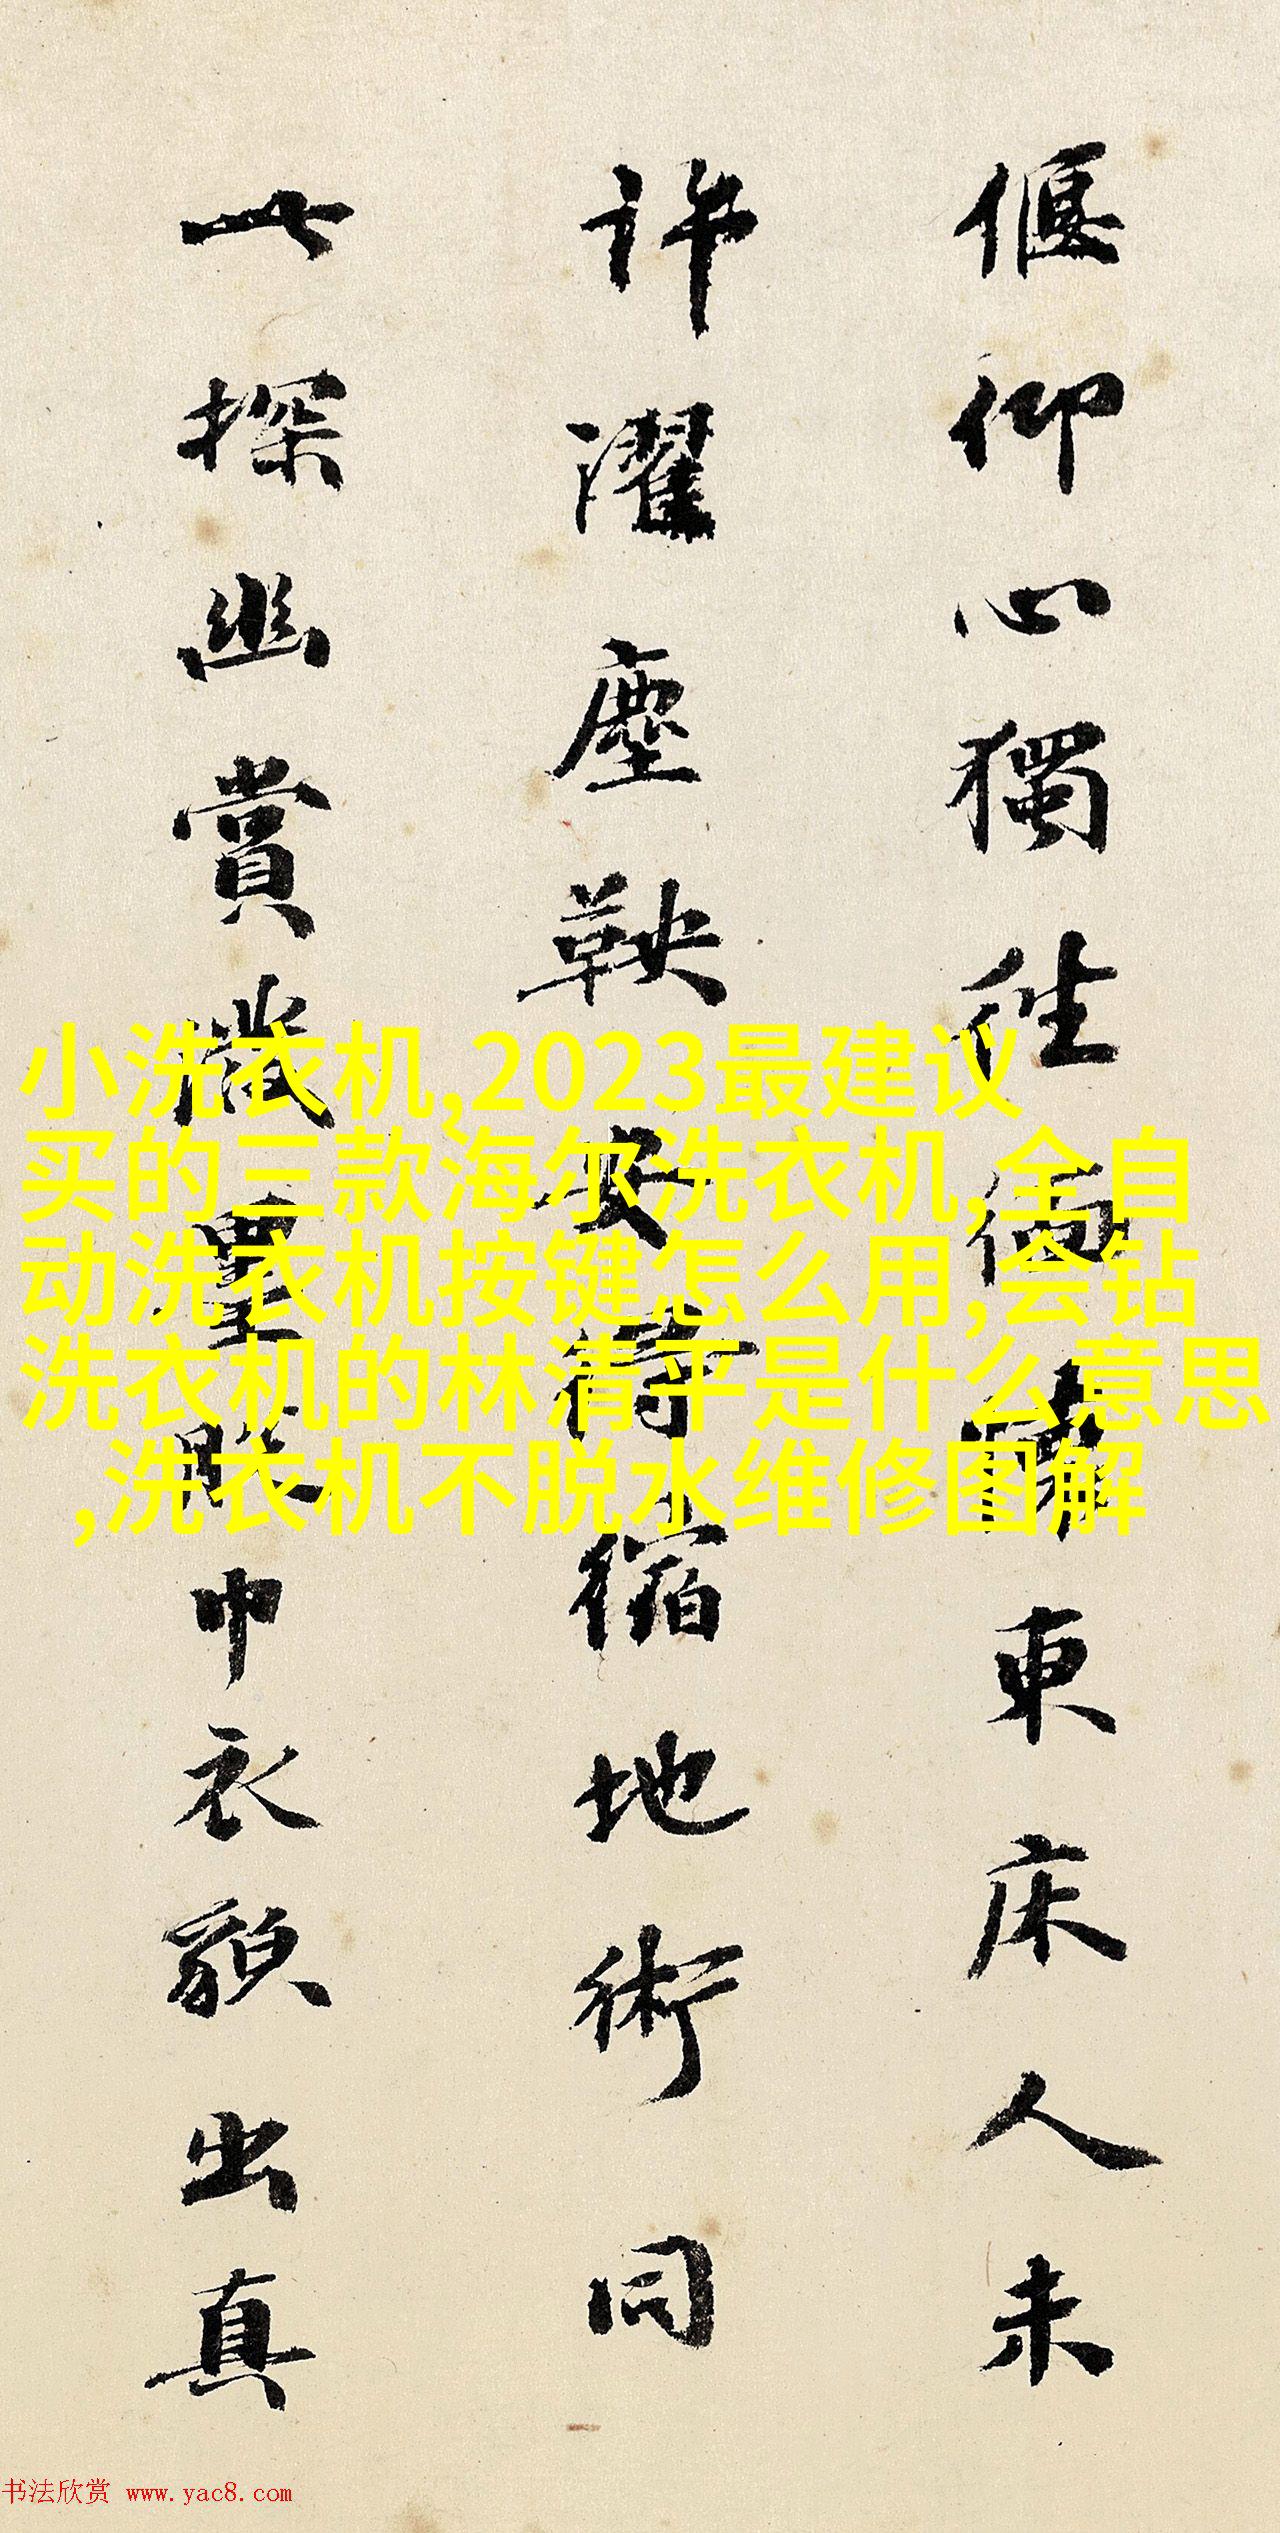 偃仰心獨往東床人未
許濯塵鞅安得縮地術同
一探幽賞巾衣貌出真
小洗衣机,2023最建议
买的三款海尔洗衣机,全自
动洗衣机按键怎么用,会钻
洗衣机的林清平是什么意思
,洗衣机不脱水维修图解
书法欣赏 www.yac8.com